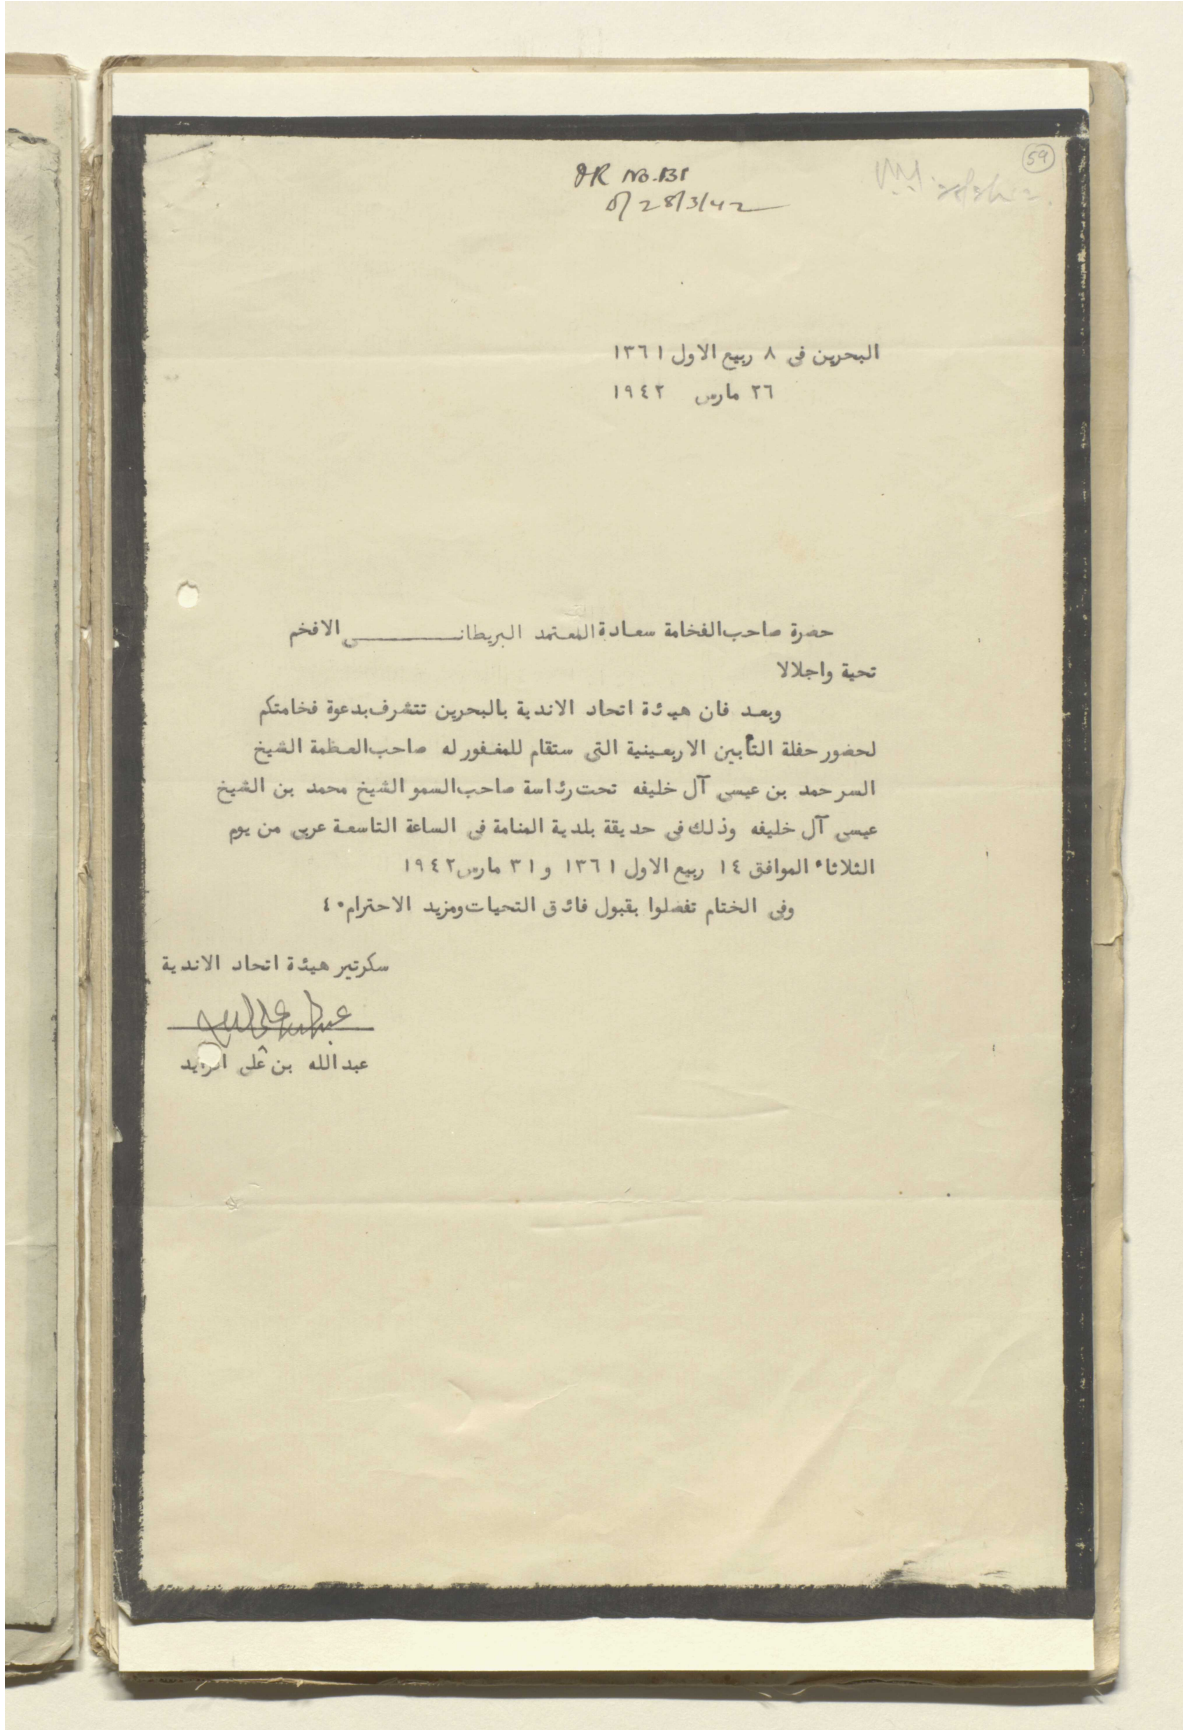 59
OR No. 131
d/ 28/3/42
البحرين فى ٨ ربيع الاول ١٣٦١
٢٦ مارس ١٩٤٢
حضرة صاحب الفخامة سعادة المعتمد البريطانــــــــى الافخم
تحية واجلالا
وبعد فان هيئة اتحاد الاندية بالبحرين تتشرف بدعوة فخامتكم
لحضور حفلة التأبين الاربعينية التى ستقام للمغفور له صاحب العظمة الشيخ
السر حمد بن عيسى آل خليفه تحت رئاسة صاحب السمو الشيخ محمد بن الشيخ
عيسى آل خليفه وذلك فى حديقة بلدية المنامة فى الساعة التاسعة عربى من يوم
الثلاثاء الموافق ١٤ ربيع الاول ١٣٦١ و ٣١ مارس ١٩٤٢
وفى الختام تفضلوا بقبول فائق التحيات ومزيد الاحترام ٤٠
سكرتير هيئة اتحاد الاندية
عبد الله بن على الزايد